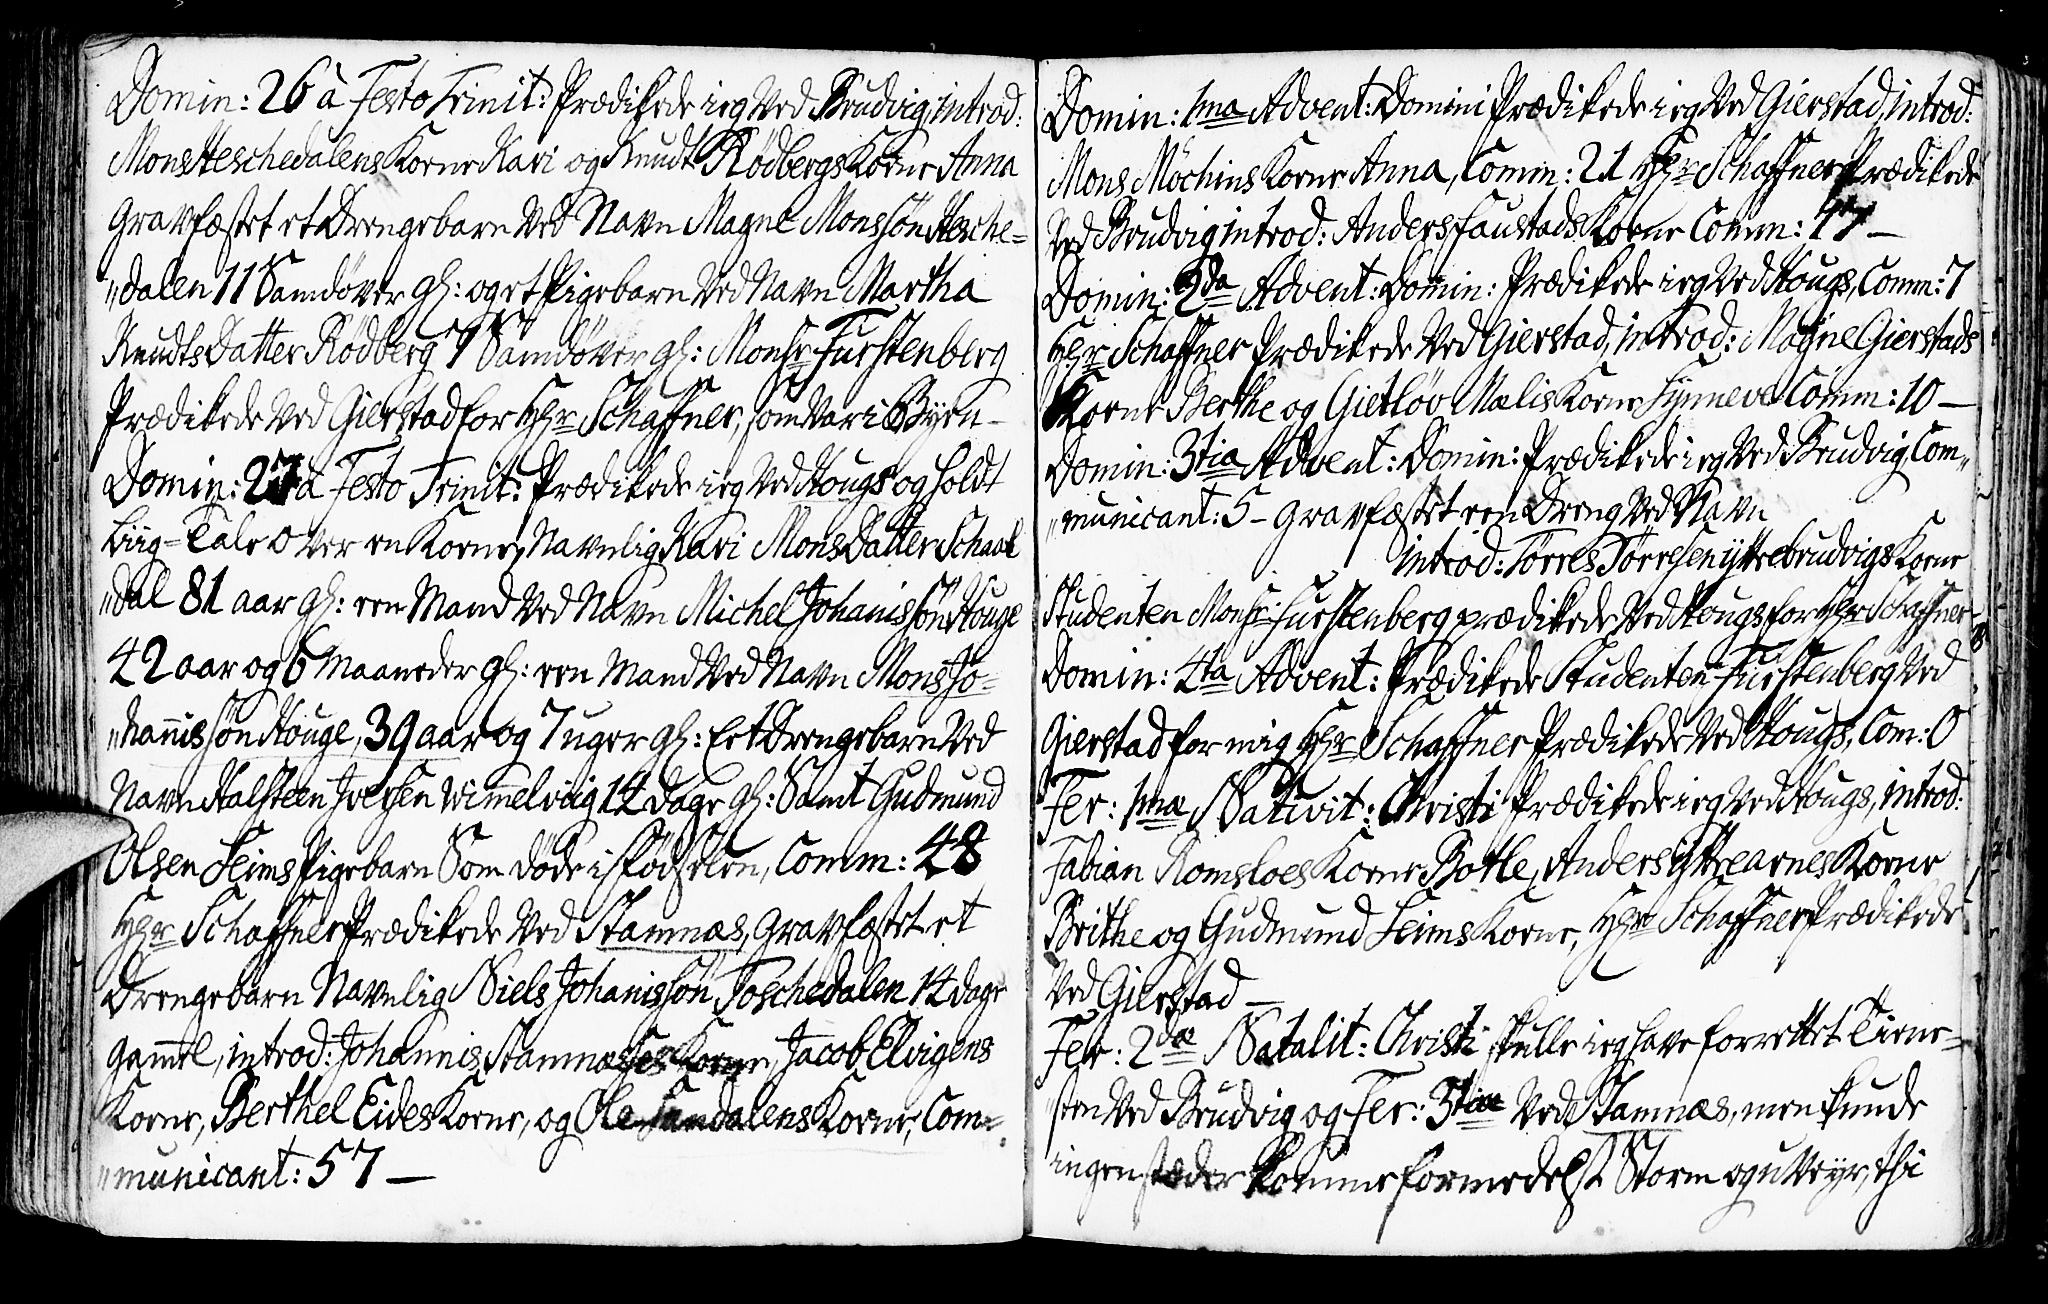 Domin: 26 à Festo Trinit: Prædikede ieg Ved Brudvig, introd:
Mons Heschedalens Korne Kari og Knudt Rødbergs Korne Anna
Gravfæstet et Drengebarn Ved Navn Magne Monssøn Hesche=
„dalen 11 Samdøver gl: og et Pigebarn Ved Navn Martha
Knudts Datter Rødberg 7 Samdøver gl: Monsr Fürstenberg
Prædikede Ved Gierstad for Hr Schaffner, som Var i Byen –
Domin: 27 à Festo Trinit: Prædikede ieg Ved Hougs og holdt
Liig=Tale over en Korne, Navnlig Kari Mons Datter Schaal
„dal 81 aar gl: een Mand Ved Navn Michel Johanissøn Houge
42 aar og 6 Maaneder gl: een Mand Ved Navn Mons Jo=
„hannissøn Houge, 39 aar og 7 uger gl: Eet Drengebarn Ved
Navn Halsteen Iversen Wimmelviig 14 dage gl: Samt Gudmund
Olsen Seims Pigebarn Som døde i fødselen, Comm: 48
Hr Schaffner Prædikede Ved Stamnæs, Gravfæstet et
Drengebarn Navnlig Niels Johanissøn Toschedalen 14 dage
gammel, introd: Johannis Stamnæsses Korne, Jacob Elvigens
Korne, Berthel Eides Korne, og Ole Sandalens Korne, Com=
„municant: 57 –
Domin: 1ma Advent: Domini Prædikede ieg Ved Gierstad, introd:
Mons Møchins Korne Anna, Comm: 21 Hr Schaffner Prædikede
Ved Brudvig introd: Anders Faustads Korne Comm: 47 –
Domin: 2da Advent: Domin: Prædikede ieg Ved Hougs, Comm: 7
Hr Schaffner Prædikede Ved Gierstad, introd: Magne Gierstads
Korne Berthe og Gietløv Mælis Korne Synneve Comm: 10 –
Domin: 3tia Advent: Domin: Prædikede ieg Ved Brudvig, Com„
„municant: 5 – Gravfæstet een Dreng Ved Navn
introd: Tørres Tørresen yttrebrudvigs Korne
Studenten Monsr: Furstenberg prædikede Ved Hougs for Hr Schaffner
Domin: 4ta Advent: Prædikede Studenten Furstenberg Ved
Gierstad for mig Hr Schaffner Prædikede Ved Hougs, Com: 0
Fer: 1mæ Nativit: Christi Prædikede ieg Ved Hougs, introd:
Fabian Romsloes Korne Botle, Anders yttrearnes Korne
Brithe og Gudmund Seims Korne, Hr Schaffner Prædikede
Ved Gierstad –
Fer: 2dæ Natalit: Christi skulle ieg have forrettet Tiene=
sten Ved Brudvig og Fer: 3tiæ Ved Stamnæs, men kunde
ingenstæder komme formedelst Storm og uveyr, thi